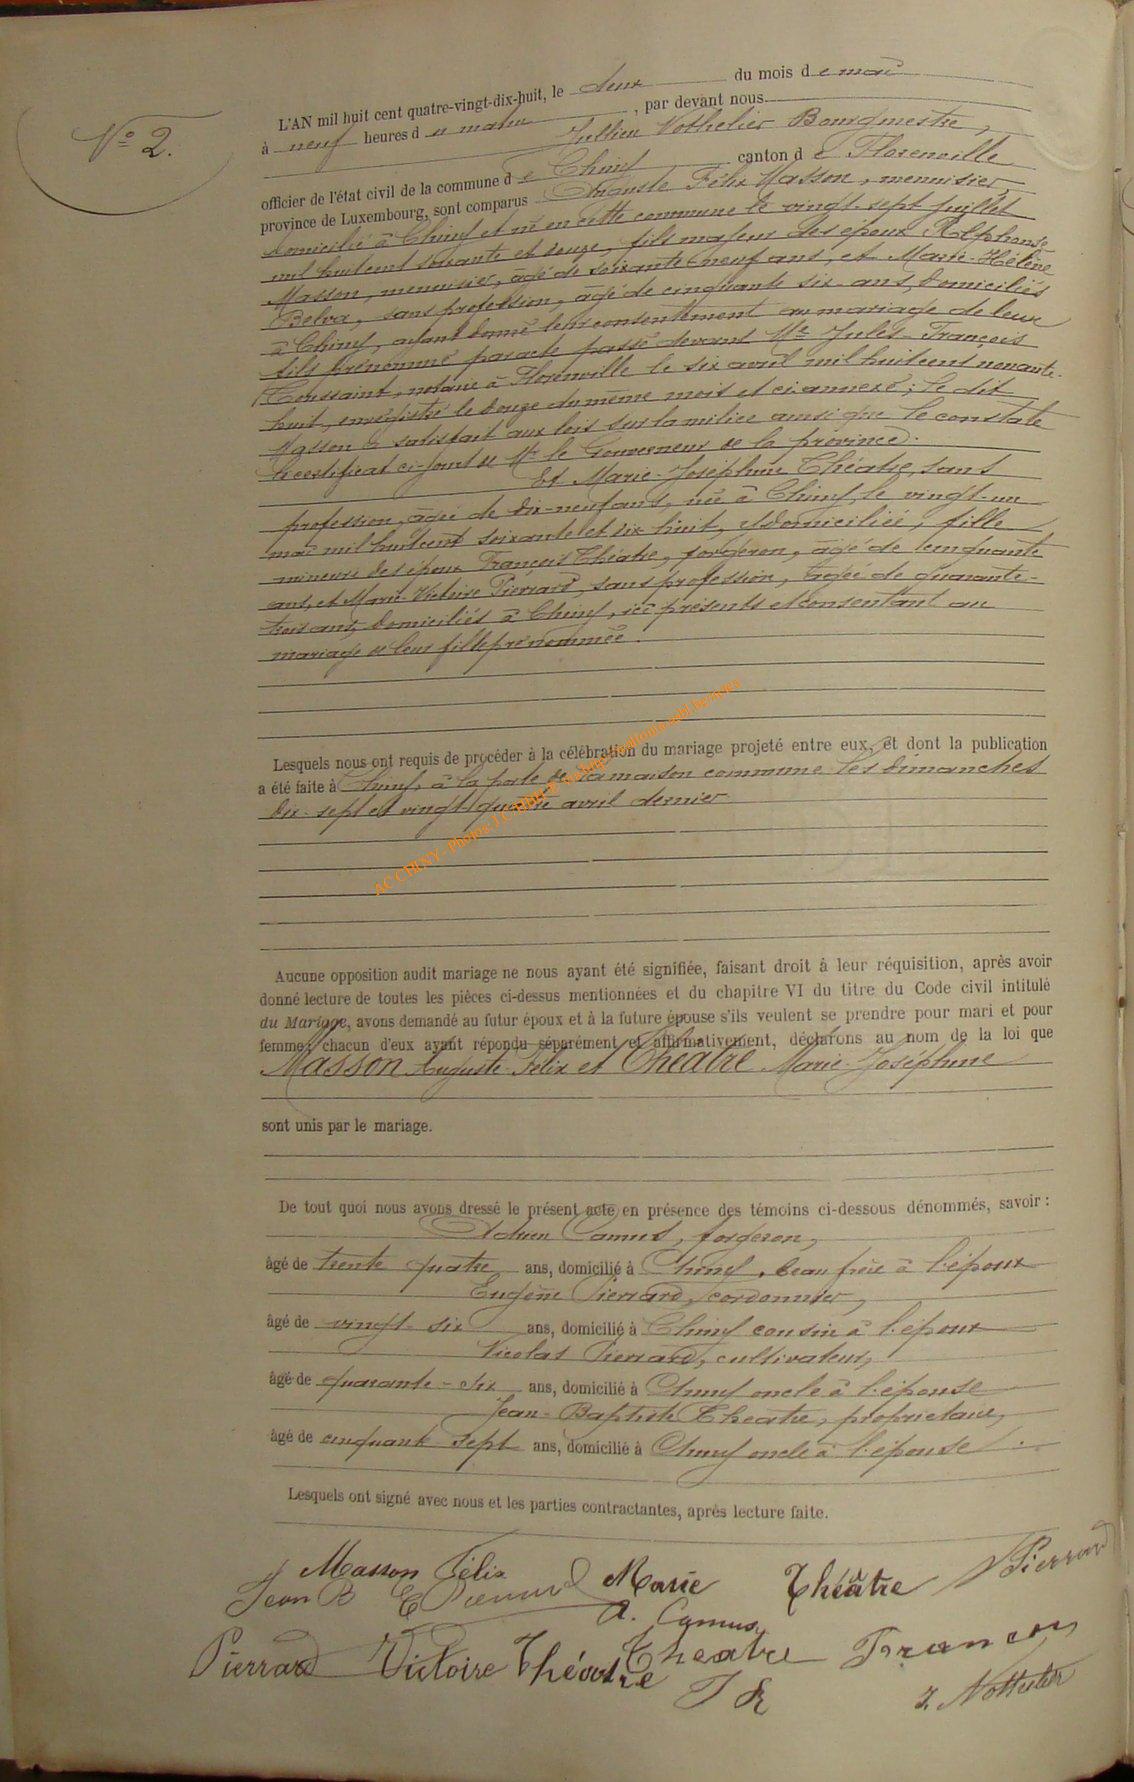 N° 2.
L'AN mil huit cent quatre-vingt-dix-huit, le deux du mois de mai
à neuf heures du matin, par devant nous
Jullien Nothelier Bourgmestre,
officier de l'état civil de la commune de Chiny canton de Florenville
province de Luxembourg, sont comparus Auguste Félix Masson, menuisier,
domicilié à Chiny et né en cette commune le vingt-sept juillet
mil huit cent soixante et douze, fils majeur des époux Alphonse
Masson, menuisier, âgé de soixante-neuf ans, et Marie-Hélène
Belva, sans profession, âgée de cinquante six ans, domiciliés
à Chiny, ayant donné leur consentement au mariage de leur
fils prénommé par acte passé devant Me Jules-François
Toussaint, notaire à Florenville le six avril mil huit cent nonante-
huit, enregistré le douze du même mois et ci annexé; le dit
Masson a satisfait aux lois sur la milice ainsi que le constate
le certificat ci-joint de Mr le Gouverneur de la province.
Et Marie-Joséphine Théâtre, sans
profession, âgée de dix-neuf ans, née à Chiny, le vingt-un
mai mil huit cent soixante et dix huit, et domiciliée, fille
mineure des époux François Théâtre, forgeron, âgé de cinquante
ans, et Marie-Victoire Pierrard, sans profession, âgée de quarante-
trois ans, domiciliés à Chiny, ici présents et consentant au
mariage de leur fille prénommée.
Lesquels nous ont requis de procéder à la célébration du mariage projeté entre eux, et dont la publication
a été faite à Chiny, à la porte de la maison commune les dimanches
dix-sept et vingt-quatre avril dernier
AC CHINY - Photos J.C.
Aucune opposition audit mariage ne nous ayant été signifiée, faisant droit à leur réquisition, après avoir
donné lecture de toutes les pièces ci-dessus mentionnées et du chapitre VI du titre du Code civil intitulé
du Mariage, avons demandé au futur époux et à la future épouse s'ils veulent se prendre pour mari et pour
femme; chacun d'eux ayant répondu séparément et affirmativement, déclarons au nom de la loi que
Masson Auguste-Félix et Théâtre Marie-Joséphine
sont unis par le mariage.
De tout quoi nous avons dressé le présent acte en présence des témoins ci-dessous dénommés, savoir :
Adrien Camus, forgeron,
âgé de trente quatre ans, domicilié à Chiny, beau frère à l'époux
Eugène Pierrard, cordonnier,
âgé de vingt-six ans, domicilié à Chiny cousin à l'époux
Nicolas Pierrard, cultivateur,
âgé de quarante-six ans, domicilié à Chiny oncle à l'épouse
Jean-Baptiste Théatre, propriétaire,
âgé de cinquante sept ans, domicilié à Chiny oncle à l'épouse.
Lesquels ont signé avec nous et les parties contractantes, après lecture faite.
Masson Félix Marie Théâtre N Pierrard
Jean B E Pierrard A. Camus
Pierrard Victoire Théâtre Théatre François
J. Nothelier